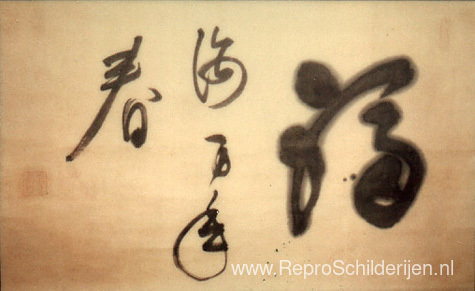 福
海万年
春
www.ReproSchilderijen.nl